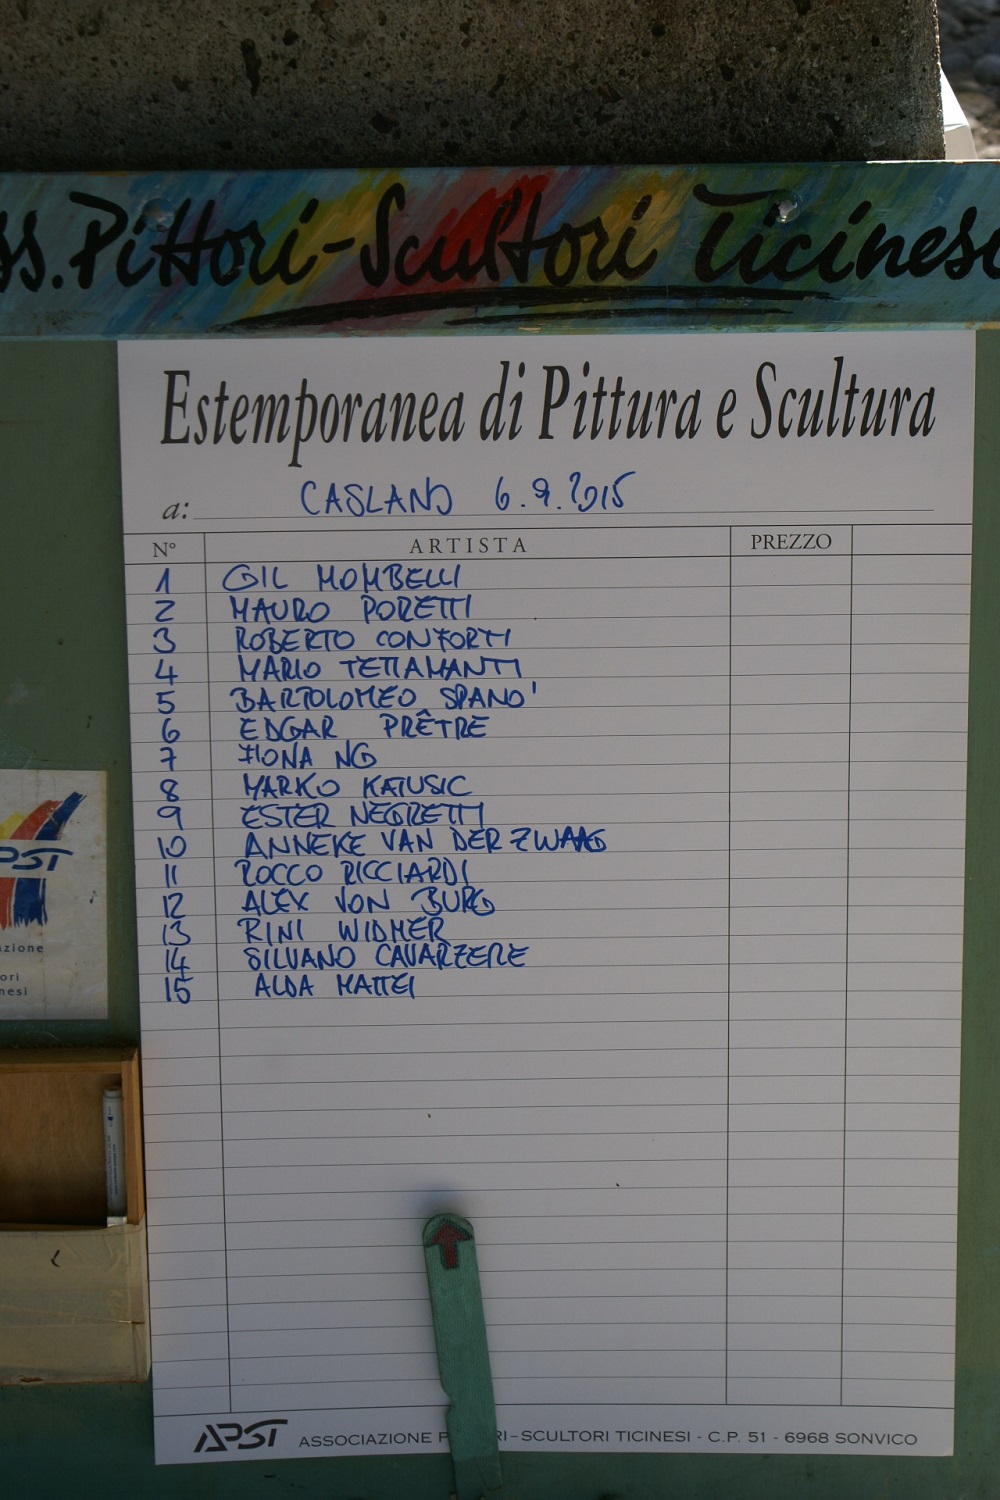 ss. Pittori-Scultori Ticinesi
Estemporanea di Pittura e Scultura
a: CASLANO 6.9.2015
N° ARTISTA PREZZO
1 GIL MOMBELLI
2 MAURO PORETTI
3 ROBERTO CONFORTI
4 MARIO TETTAMANTI
5 BARTOLOMEO SPANO'
6 EDGAR PRÊTRE
7 FIONA NG
8 MARKO KATUSIC
9 ESTER NEGRETTI
10 ANNEKE VAN DER ZWAAG
11 ROCCO RICCIARDI
12 ALEX VON BURG
13 RINI WIDMER
14 SILVANO CAVARZERE
15 ALDA MATTEI
PST
zione
ori
nesi
APST ASSOCIAZIONE P RI-SCULTORI TICINESI - C.P. 51 - 6968 SONVICO